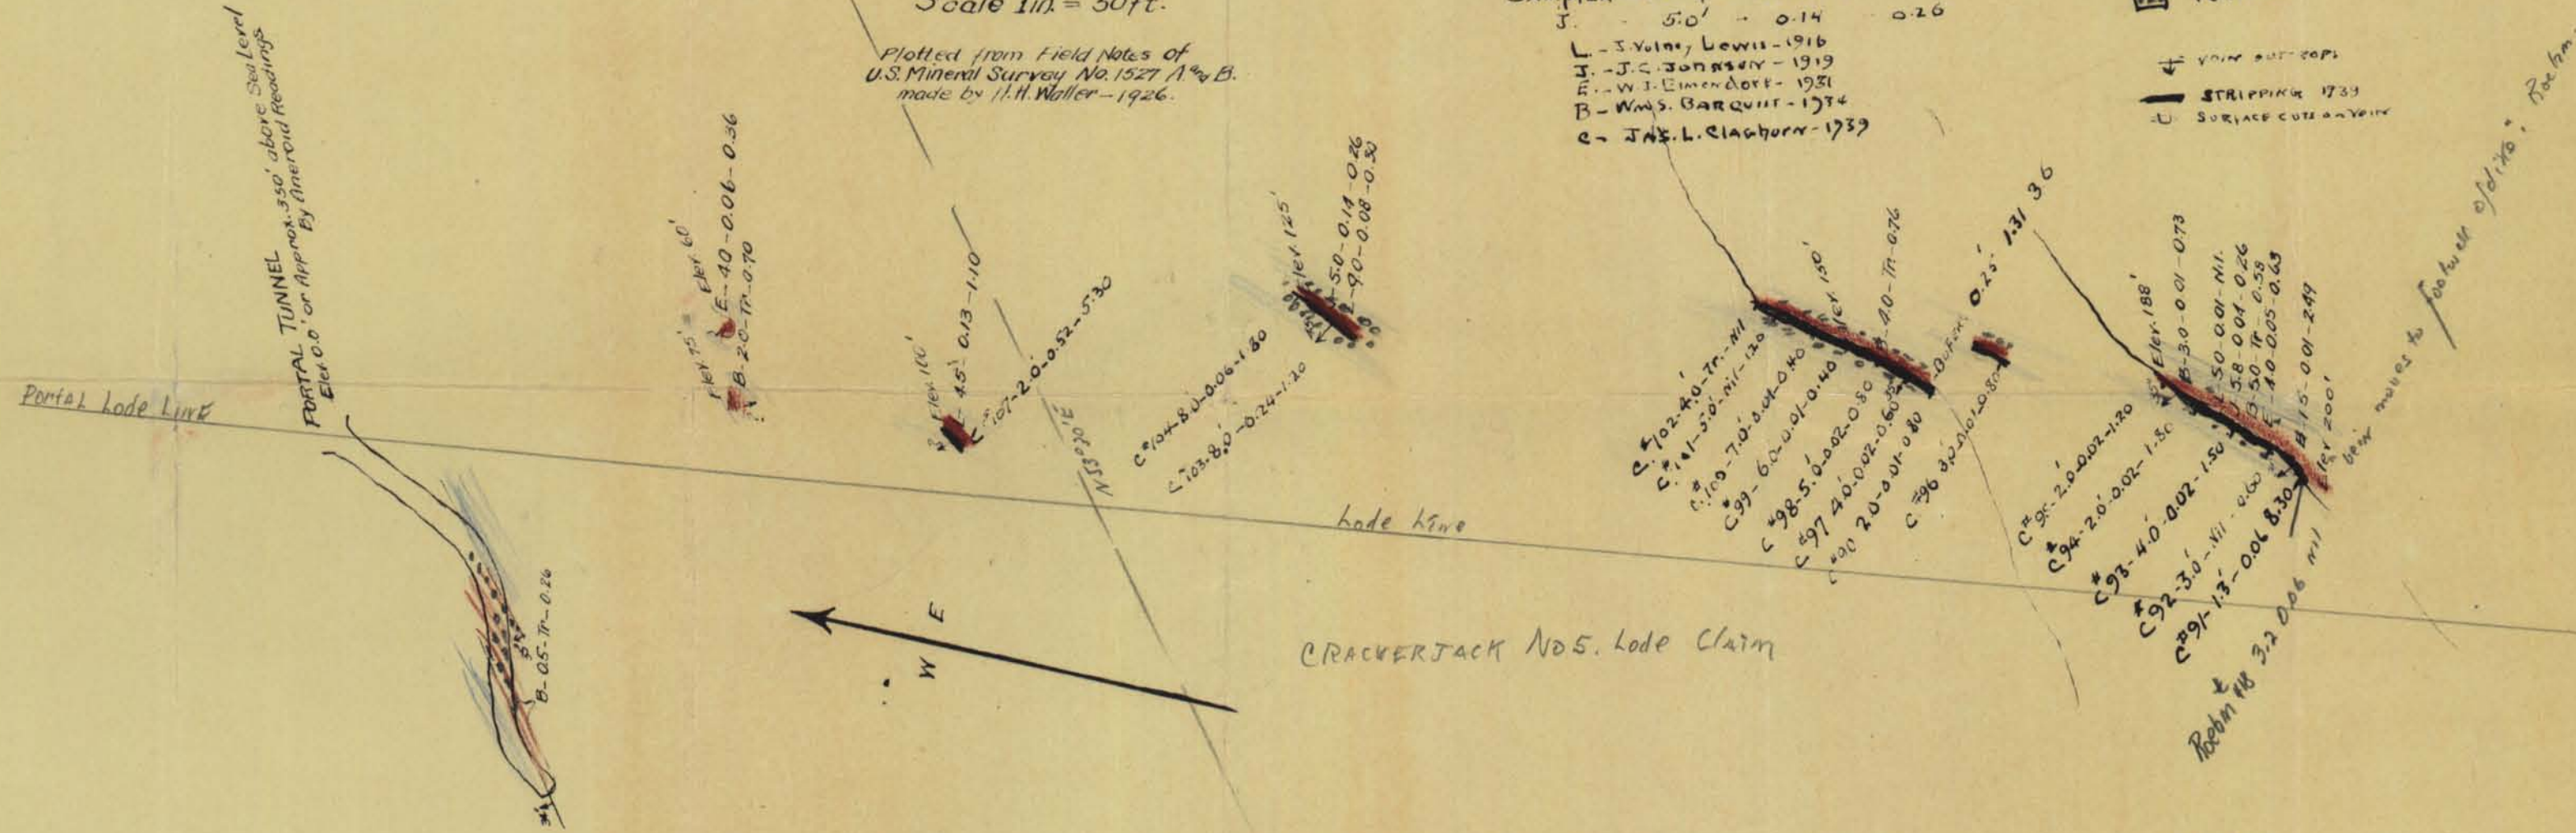 Scale 1in. = 50ft.
Plotted from Field Notes of
U.S. Mineral Survey No. 1527 A and B.
made by H.H. Waller - 1926.
J. - 5.0' - 0.14 0.26
L. - J. Volney Lewis - 1916
J. - J.C. Johnson - 1919
E. - W.J. Elmendorf - 1931
B - Wm. S. BARQUIST - 1934
C - JAS. L. Claghorn - 1939
VEIN OUT-CROPS
STRIPPING 1939
SURFACE CUTS on VEIN
PORTAL TUNNEL
Elev. 0.0' or Approx. 350' above Sea Level
By Aneroid Readings
Portal Lode Line
B-0.5-Tr-0.26
Elev. 75' = Elev. 60'
E-4.0-0.06-0.36
B-2.0-Tr-0.70
Elev. 100'
4.5-0.13-1.10
C#107-2.0'-0.52-5.30
N53°30'E
C#104-8.0-0.06-1.80
C#103-8.0'-0.24-1.20
Elev. 125'
5.0-0.14-0.26
9.0-0.08-0.50
Lode Line
W E
CRACKERJACK No 5. Lode Claim
C#102-4.0-Tr.-Nil
C#101-5.0-Nil-1.20
C#100-7.0-0.01-0.40
C#99-6.0-0.01-0.40
C#98-5.0-0.02-0.80
C#97 4.0-0.02-0.60
C#90 2.0-0.01-0.80
C#96 3.0-0.01-0.80
Elev. 150'
B-4.0-Tr-0.76
0.25' 1.31 3.6
Elev. 188'
B-3.0-0.01-0.73
5.0-0.01-Nil.
5.8-0.04-0.26
B-5.0-Tr-0.58
E-4.0-0.05-0.63
B-1.5-0.01-2.49
Elev 200'
C#95-2.0-0.02-1.20
C#94-2.0-0.02-1.50
C#93-4.0-0.02-1.50
C#92-3.0-Nil-0.60
C#91-1.3'-0.06 8.30
Roehm #18 3.2 0.06 nil
vein moves to footwall of dike: Roehm.